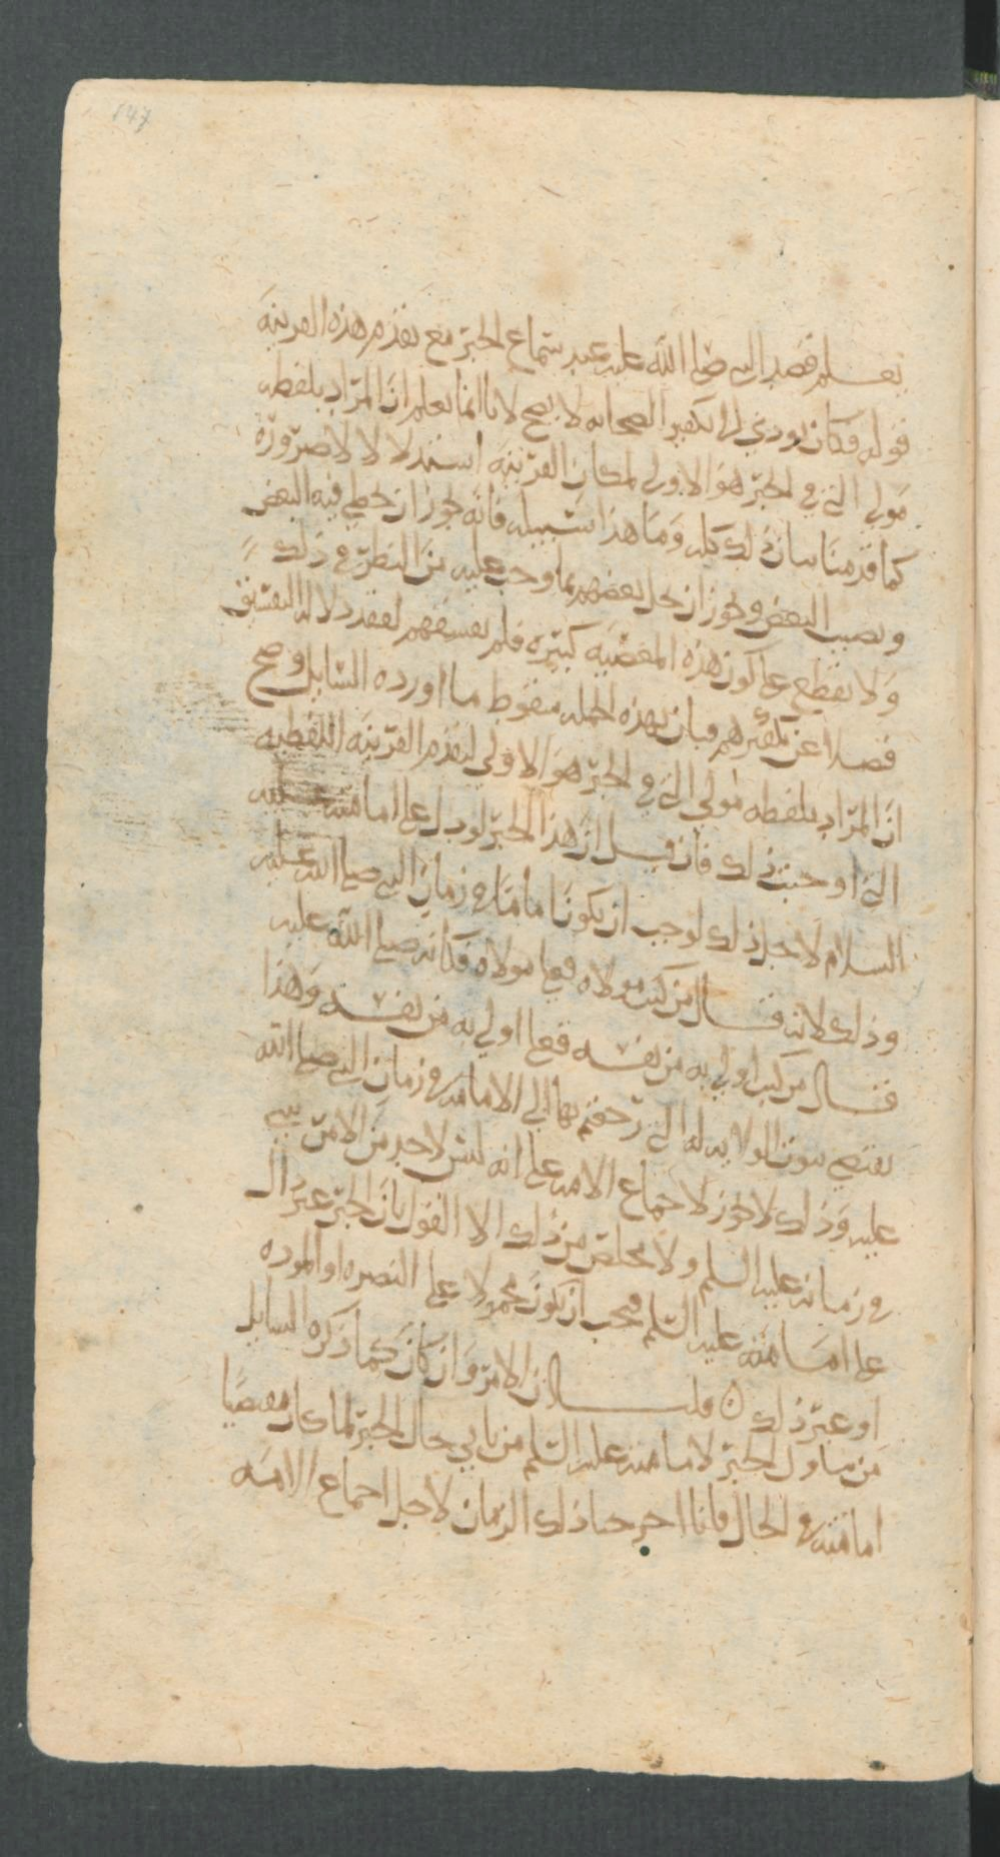 147
يعلم قصد النبي صلى الله عليه عند سماع الخبر مع تقدم هذه القرينة
قوله فكان يودي الى تكفير الصحابه لا يصح لانا انما نعلم ان المراد بلفظه
مولى التي في الخبر هو الاولى لمكان القرينه استدلالا لا ضرورة
كما قدمنا بيان ذلك كله وما هذا سبيله فانه يجوز ان يخطي فيه البعض
ويصيب البعض ويجوز ان يخل بعضهم بما وجب عليه من النظر في ذلك
ولا نقطع على كون هذه المعصيه كبيره فلم نفسقهم لفقد دلاله التفسيق
فضلا عن تكفيرهم فبان بهذه الجمله سقوط ما اورده السايل وصح
ان المراد بلفظه مولى التي في الخبر هو الاولى لتقدم القرينه اللفظيه
التي اوجبت ذلك فان قيل ان هذا الخبر لو دل على امامته عليه
السلام لاجل ذلك لوجب ان يكون اماما في زمان النبي صلى الله عليه
وذلك لانه قال من كنت مولاه فعلي مولاه فكانه صلى الله عليه
قال من كنت اولى به من نفسه فعلي اولى به من نفسه وهذا
يقتضي ثبوت الولايه له التي رجعتم بها الى الامامه في زمان النبي صلى الله
عليه وذلك لا يجوز لاجماع الامه على انه ليس لاحد من الامر شي
في زمانه عليه السلم ولا مخلص من ذلك الا القول بان الخبر غير دال
على امامته عليه السلم فيجب ان يكون محمولا على النصره او الموده
او غير ذلك ن قلنا ان الامر وان كان كما ذكره السايل
من تناول الخبر لامامته عليه السلم من حال الخبر لما كان مقتضيا
امامته في الحال فانا اخرجنا ذلك الزمان لاجل اجماع الامه